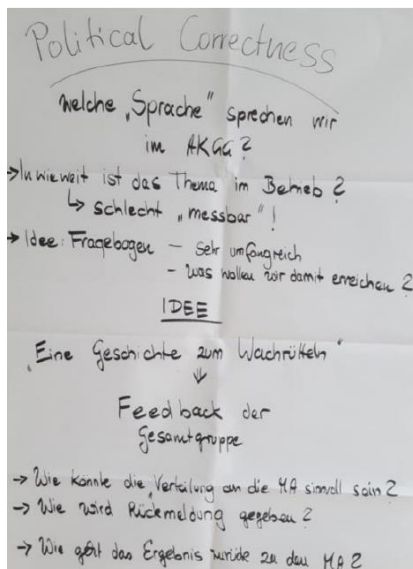 Political Correctness
Welche „Sprache“ sprechen wir
im AKGG?
→ Inwieweit ist das Thema im Betrieb?
↳ schlecht „messbar“!
→ Idee: Fragebogen – sehr umfangreich
– was wollen wir damit erreichen?
IDEE
„Eine Geschichte zum Wachrütteln“
⇓
Feedback der
Gesamtgruppe
→ Wie könnte die Verteilung an die MA sinnvoll sein?
→ Wie wird Rückmeldung gegeben?
→ Wie geht das Ergebnis zurück zu den MA?